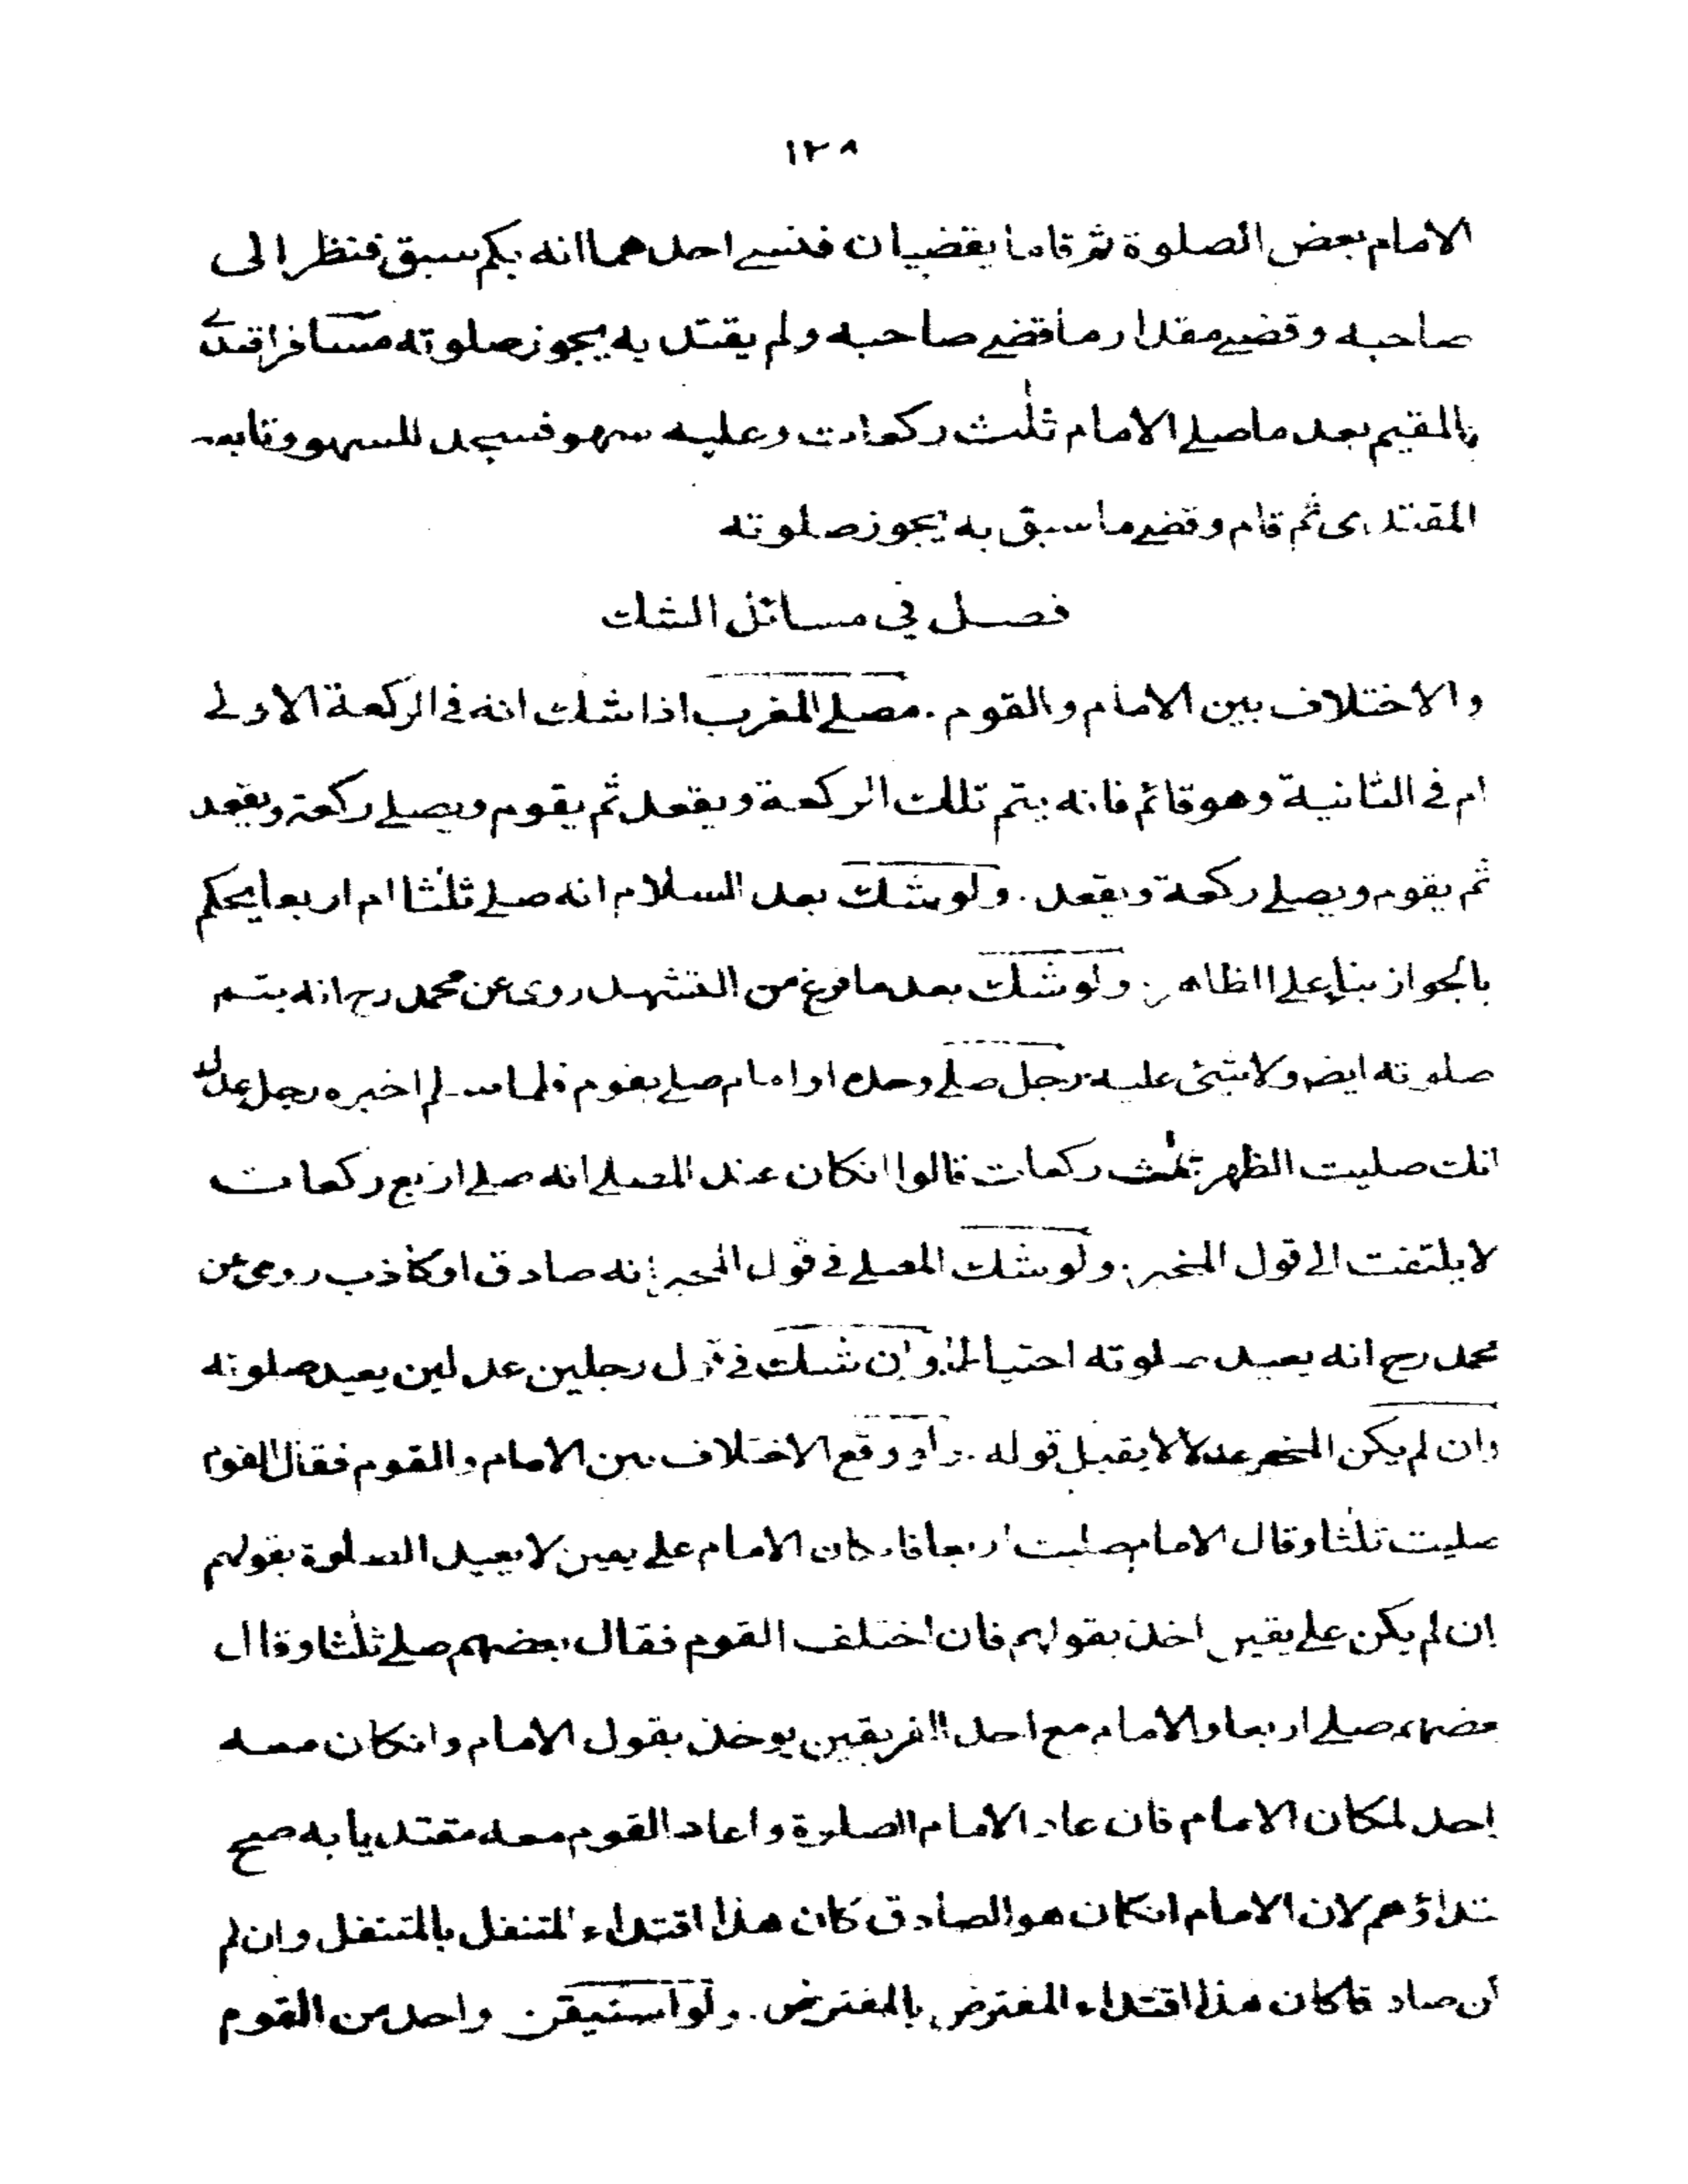 ١٢٨
الامام بعض الصلوة ثم قاما يقضيان فنسے احدهما انه بكم سبق فنظر الى
صاحبه وقضے مقدار ما قضے صاحبه ولم يقتد به يجوز صلوته مسافر اقتدے
بالمقيم بعد ما صلے الامام ثلٰث ركعات وعليه سهو فسجد للسهو وتابعه
المقتدى ثم قام وقضے ما سبق به يجوز صلوته
فصل في مسائل الشك
والاختلاف بين الامام والقوم . مصلے المغرب اذا شك انه فى الركعة الاولے
ام فى الثانية وهو قائم فانه يتم تلك الركعة ويقعد ثم يقوم ويصلے ركعة ويقعد
ثم يقوم ويصلے ركعة ويقعد . ولو شك بعد السلام انه صلے ثلٰثا ام اربعا يحكم
بالجواز بناء علے الظاهر . ولو شك بعد ما فرغ من التشهد روى عن محمد رح انه يتم
صلوته ايضا ولا شئ عليه رجل صلے وحده او امام صلے بقوم فلما سلم اخبره رجل عدل
انك صليت الظهر ثلٰث ركعات قالوا انكان عند المصلے انه صلے اربع ركعات
لا يلتفت الے قول المخبر . ولو شك المصلے فى قول المخبر انه صادق او كاذب روى عن
محمد رح انه يعيد صلوته احتياطا وان شك فى قول رجلين عدلين يعيد صلوته
وان لم يكن المخبر عدلا لا يقبل قوله . ولو وقع الاختلاف بين الامام والقوم فقال القوم
صليت ثلثا وقال الامام صليت اربعا فان كان الامام علے يقين لا يعيد الصلوة بقولهم
ان لم يكن علے يقين اخذ بقولهم فان اختلف القوم فقال بعضهم صلے ثلٰثا وقال
عضهم صلے اربعا والامام مع احد الفريقين يوخذ بقول الامام وانكان معه
احد لمكان الامام فان عاد الامام الصلوة واعاد القوم معه مقتديا به صح
تداؤهم لان الامام انكان هو الصادق كان هذا اقتداء المتنفل بالمتنفل وان لم
ن صادقا كان هذا اقتداء المفترض بالمفترض . ولو استيقن واحد من القوم